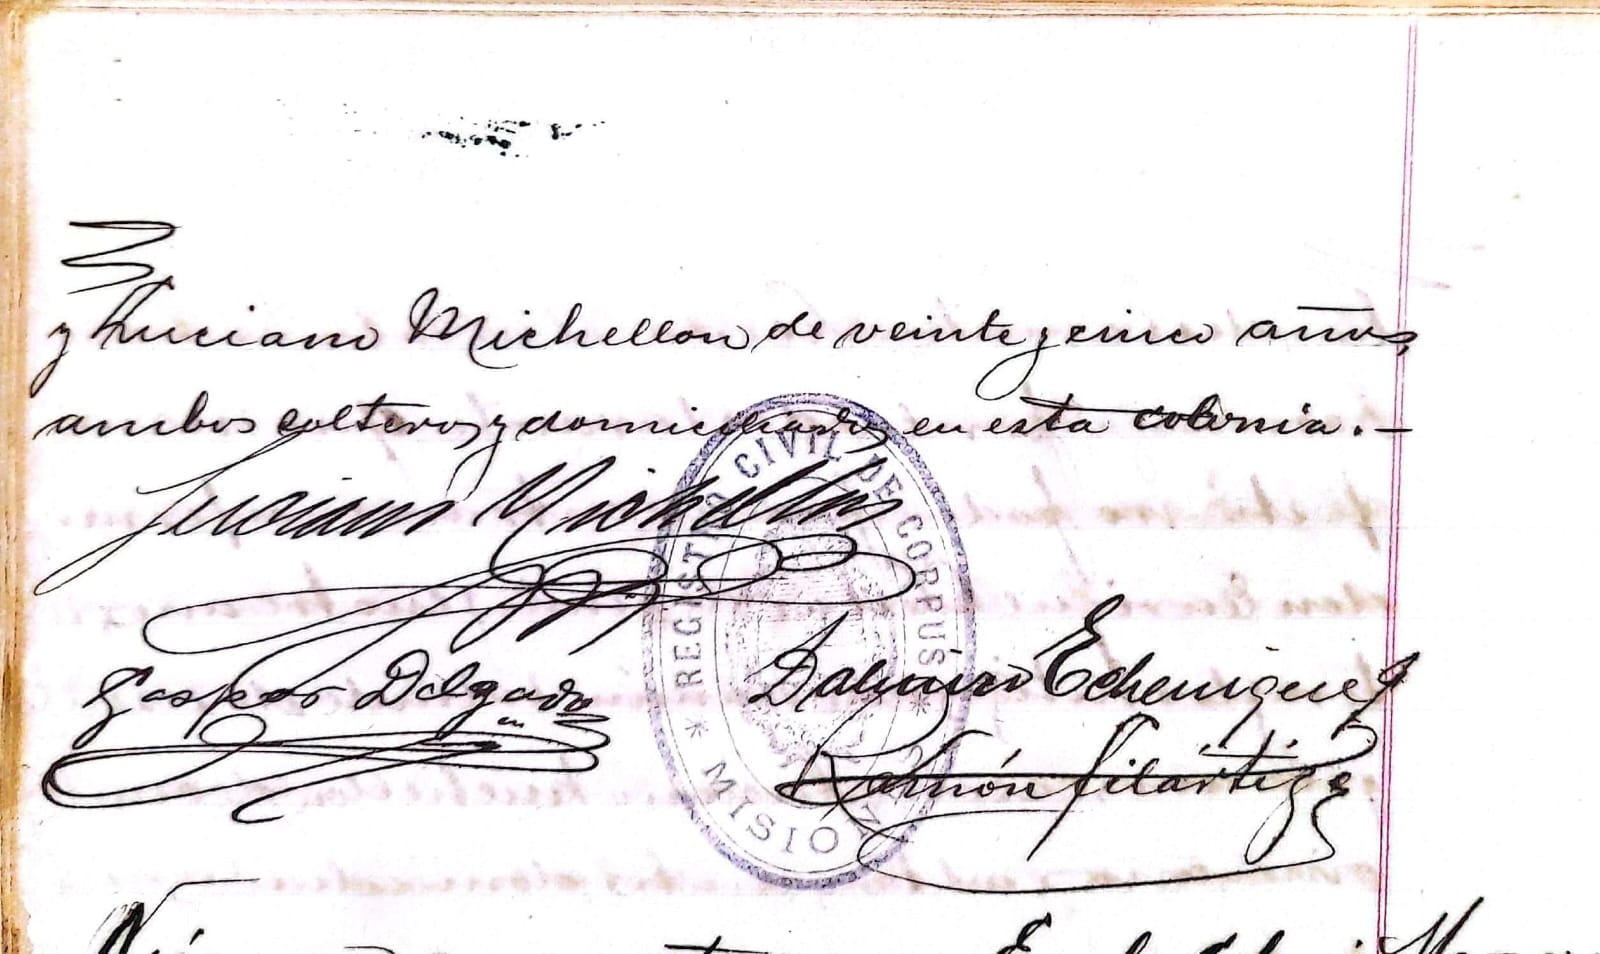 y Luciano Michellon de veinte y cinco años,
ambos solteros y domiciliados en esta colonia.—
Luciano Michellon
REGISTRO CIVIL DE CORPUS
MISIONES
Gaspar Delgado
Echenique
Ramón Filártiga